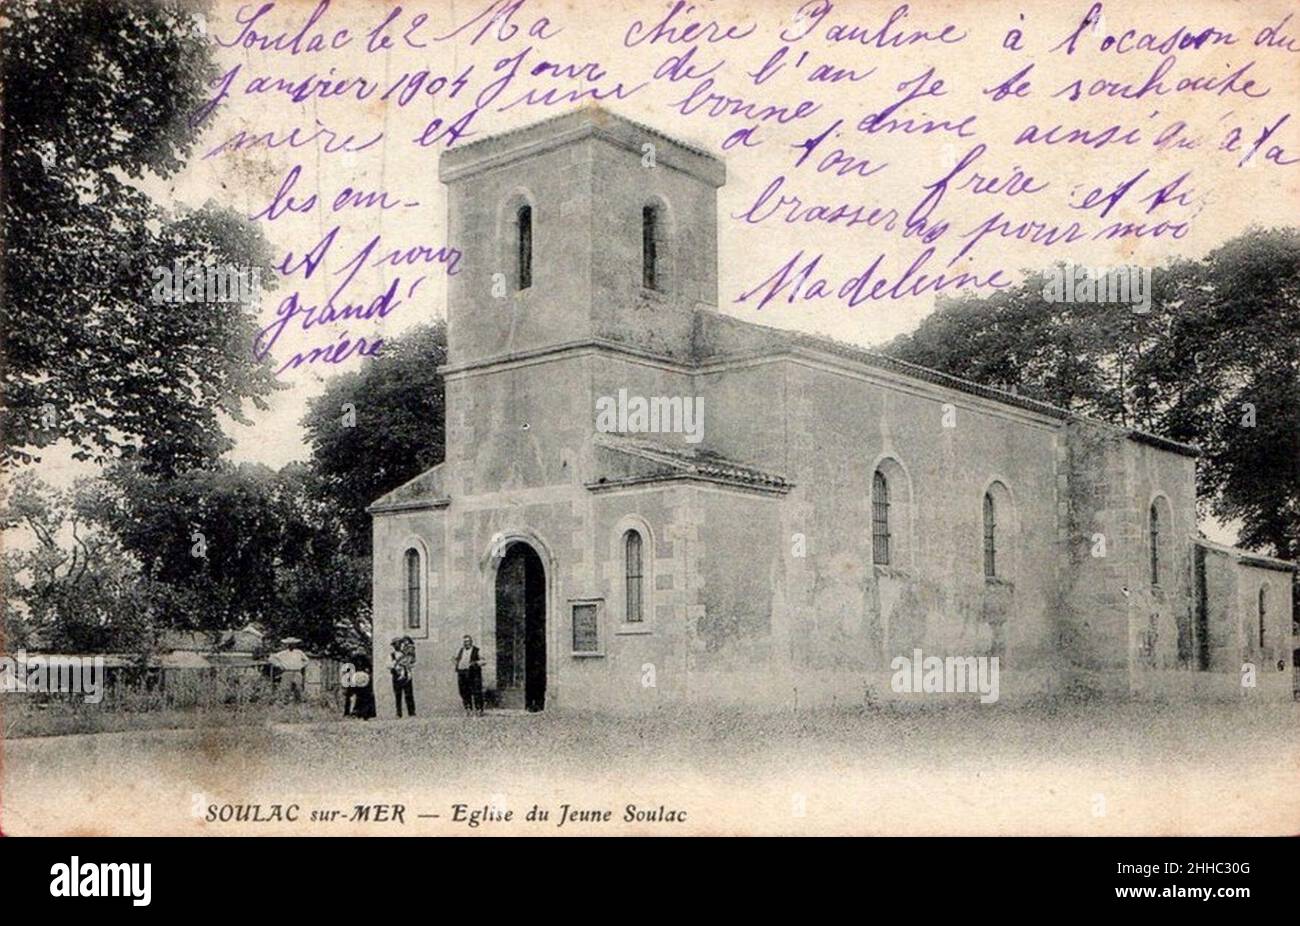 Soulac le 2 Ma chère Pauline à l'ocasion du
Janvier 1904 Jour de l'an Je te souhaite
une bonne anné ainsi qu'a ta
mère et a ton frère et
les em- brasser pour moi
et pour Madeleine
grand'
mére
SOULAC sur-MER — Eglise du Jeune Soulac
alamy
Image ID: 2HHC30G
www.alamy.com